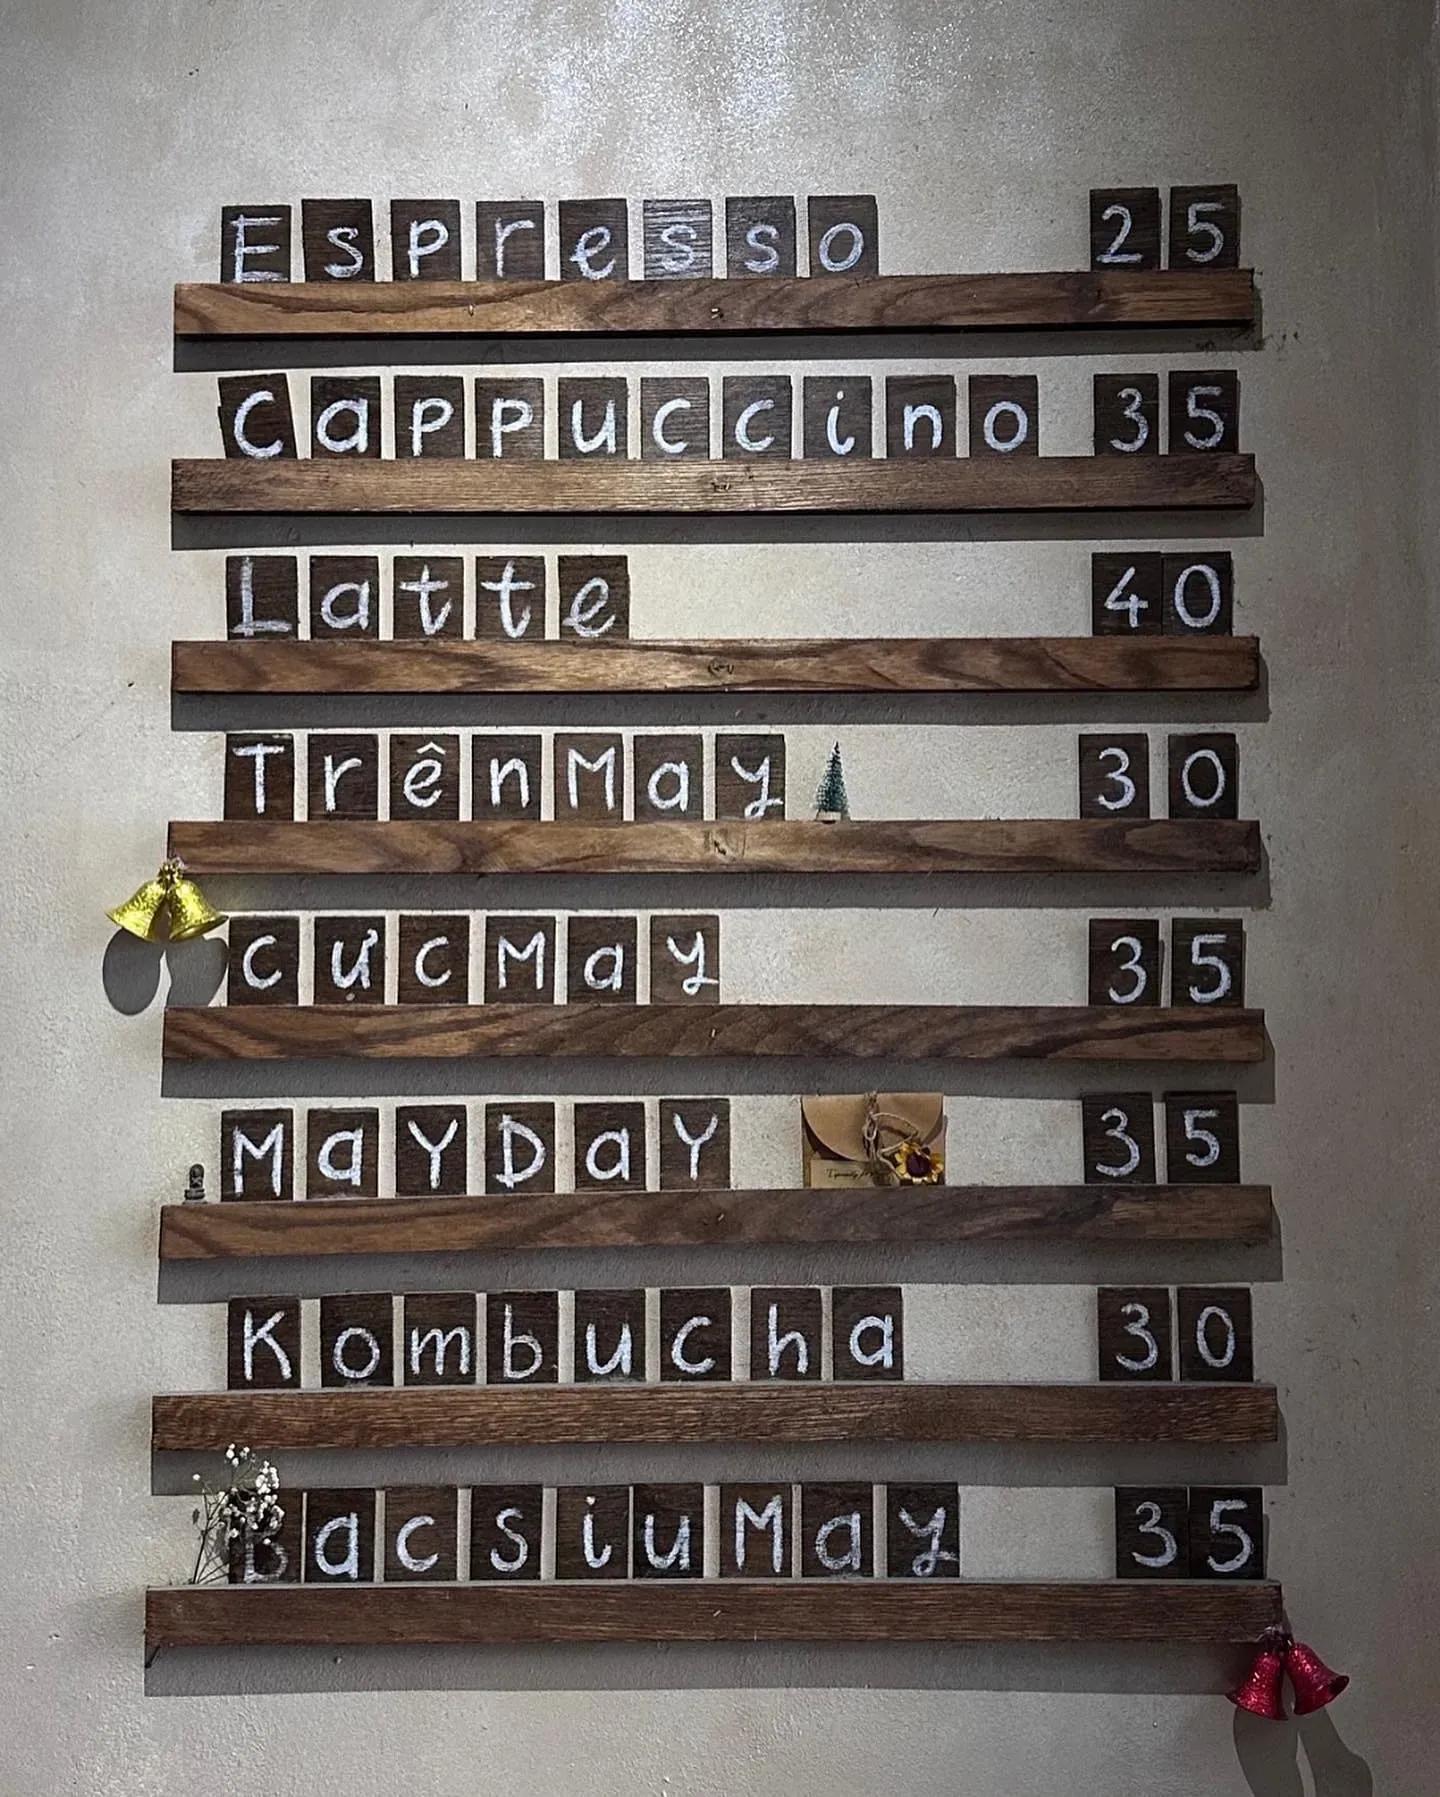 Espresso 25
Cappuccino 35
Latte 40
TrênMay 30
CựcMay 35
MaYDaY 35
Kombucha 30
BacsiuMay 35